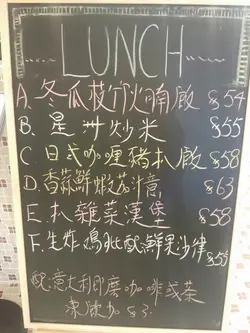 LUNCH
A. 冬瓜枝竹火腩飯 $54
B. 星洲炒米 $55
C 日式咖喱豬扒飯 $58
D. 香蒜鮮蝦茄汁意 $63
E. 扒雜菜漢堡 $58
F. 生炸鸡髀鮮果沙律 $55
配意大利即磨咖啡或茶
凍飲加 $3